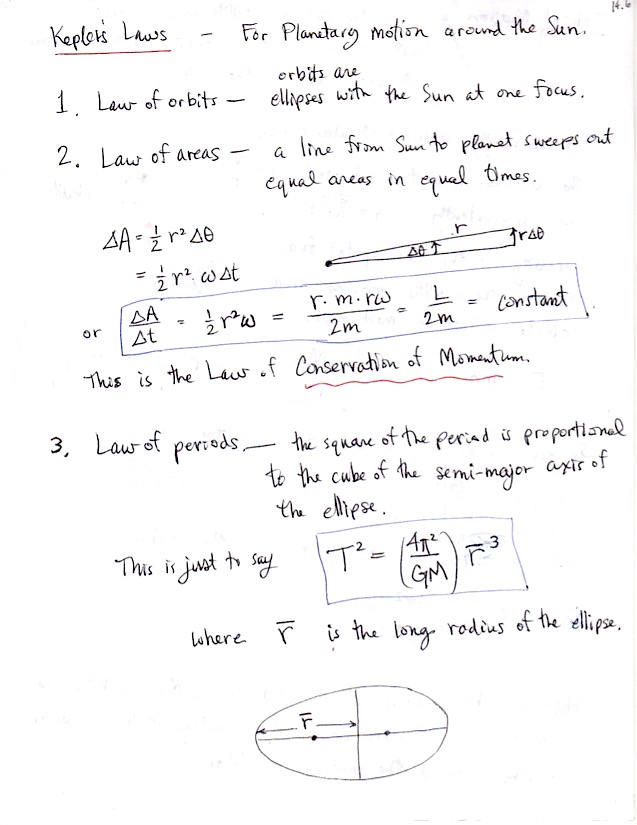 14.6
Kepler's Laws - For Planetary motion around the Sun.
1. Law of orbits — orbits are
ellipses with the Sun at one focus.
2. Law of areas — a line from Sun to planet sweeps out
equal areas in equal times.
ΔA = 1/2 r² Δθ
= 1/2 r². ω Δt
r
Δθ
rΔθ
or ΔA/Δt = 1/2 r²ω = r·m·rω/2m = L/2m = constant
This is the Law of Conservation of Momentum.
3. Law of periods — the square of the period is proportional
to the cube of the semi-major axis of
the ellipse.
This is just to say T² = (4π²/GM) r̄³
where r̄ is the long radius of the ellipse.
r̄